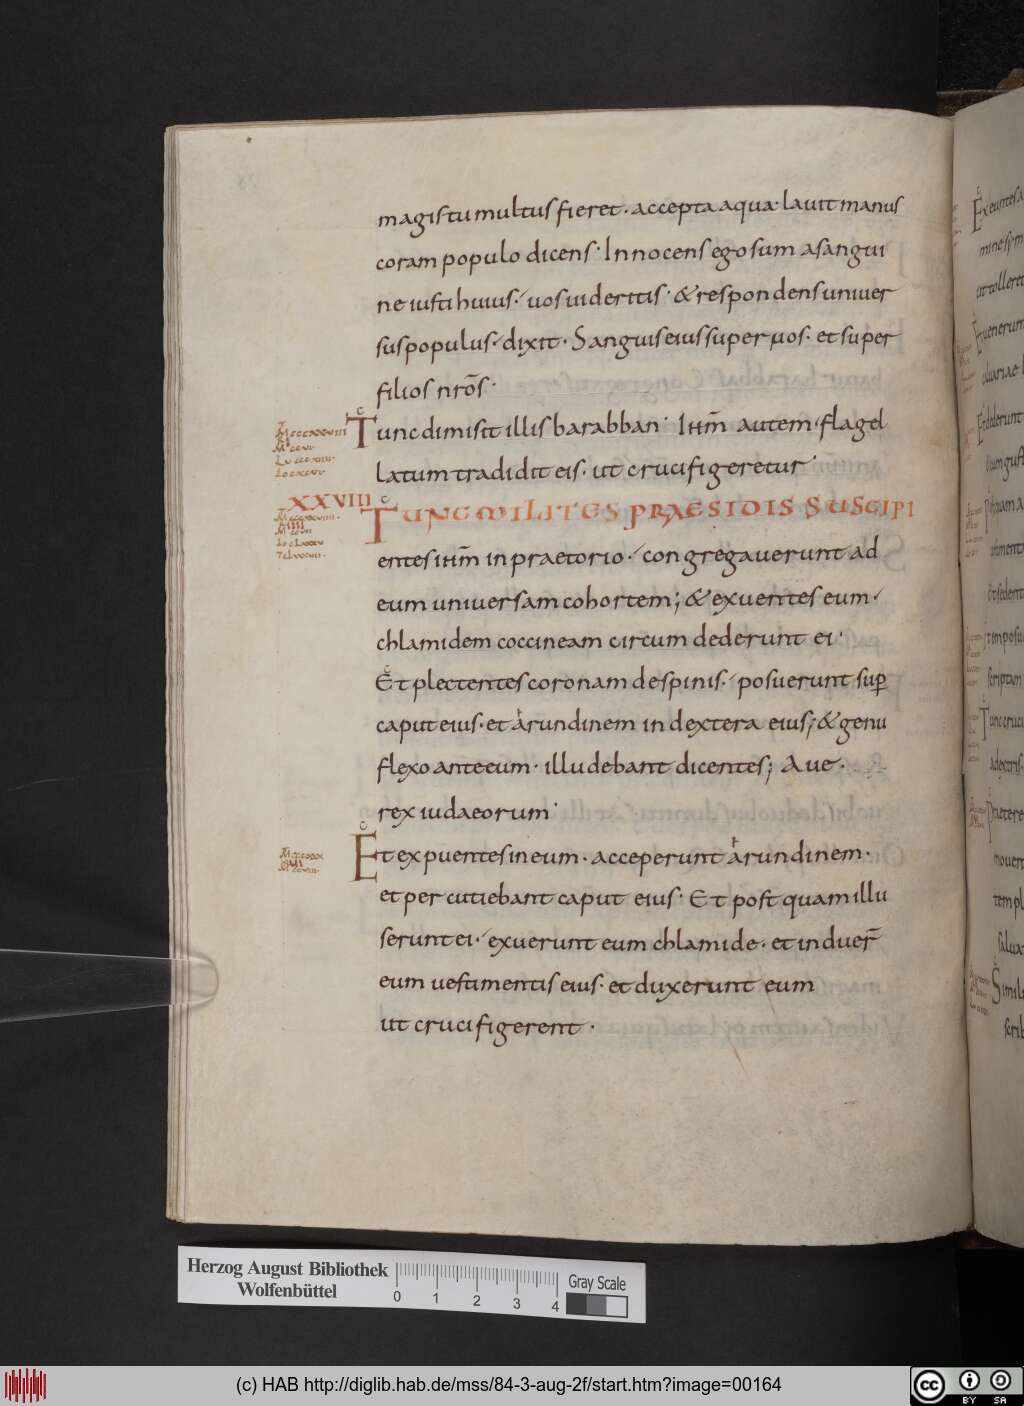 magis tumultus fieret· accepta aqua· lauit manus
coram populo dicens· Innocens ego sum a sangui
ne iusti huius· uos uideritis· & respondens uniuer
sus populus· dixit· Sanguis eius super uos· et super
filios nr̄os·
Tunc dimisit illis barabban· Ihm̄ autem· flagel
latum tradidit eis· ut crucifigeretur·
XXVIII
TUNC MILITES PRAESIDIS SUSCIPI
entes ihm̄ in praetorio· congregauerunt ad
eum uniuersam cohortem; & exuentes eum·
chlamidem coccineam circum dederunt ei·
Et plectentes coronam de spinis· posuerunt sup̱
caput eius· et arundinem in dextera eius; & genu
flexo ante eum· illudebant dicentes; Aue·
rex iudaeorum·
Et expuentes in eum· acceperunt arundinem·
et percutiebant caput eius· Et postquam illu
serunt ei· exuerunt eum chlamide· et induer̄
eum uestimentis eius· et duxerunt eum
ut crucifigerent·
Herzog August Bibliothek
Wolfenbüttel
0 1 2 3 4
Gray Scale
(c) HAB http://diglib.hab.de/mss/84-3-aug-2f/start.htm?image=00164
cc BY SA